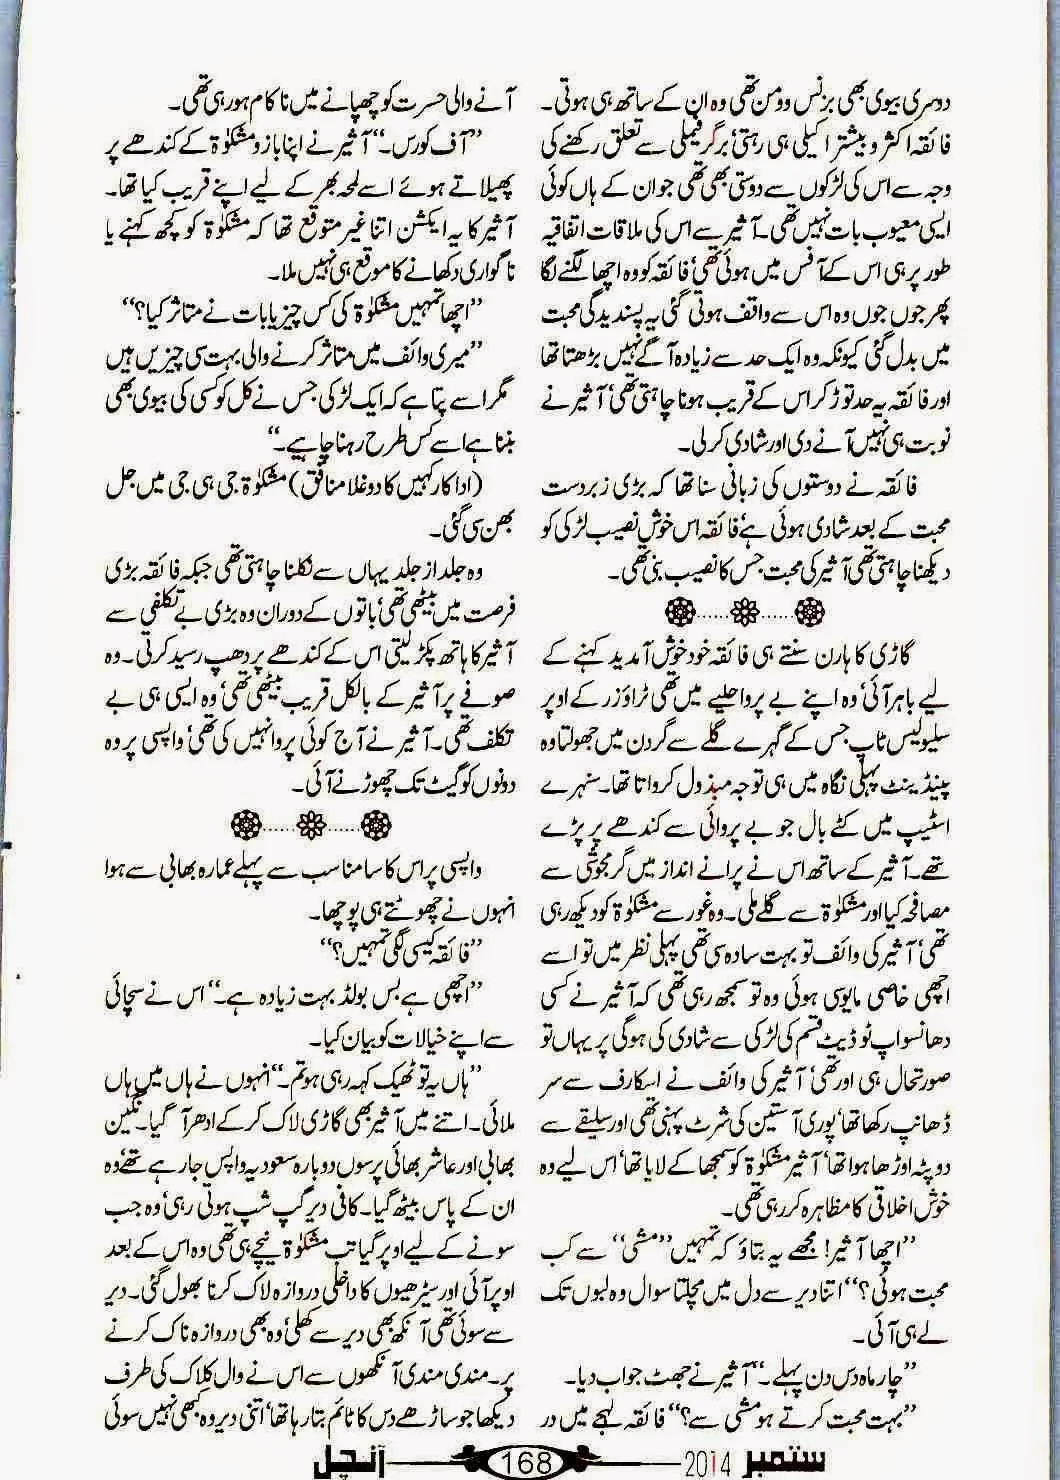 دوسری بیوی بھی بزنس وومن تھی وہ ان کے ساتھ ہی ہوتی۔
فائقہ اکثر و بیشتر اکیلی ہی رہتی‘ برگر فیملی سے تعلق رکھنے کی
وجہ سے اس کی لڑکوں سے دوستی بھی تھی جو ان کے ہاں کوئی
ایسی معیوب بات نہیں تھی۔ آثیر سے اس کی ملاقات اتفاقیہ
طور پر ہی اس کے آفس میں ہوئی تھی‘ فائقہ کو وہ اچھا لگنے لگا
پھر جوں جوں وہ اس سے واقف ہوتی گئی یہ پسندیدگی محبت
میں بدل گئی کیونکہ وہ ایک حد سے زیادہ آگے نہیں بڑھتا تھا
اور فائقہ یہ حد توڑ کر اس کے قریب ہونا چاہتی تھی‘ آثیر نے
نوبت ہی نہیں آنے دی اور شادی کرلی۔
فائقہ نے دوستوں کی زبانی سنا تھا کہ بڑی زبردست
محبت کے بعد شادی ہوئی ہے‘ فائقہ اس خوش نصیب لڑکی کو
دیکھنا چاہتی تھی آثیر کی محبت جس کا نصیب بنی تھی۔
گاڑی کا ہارن سنتے ہی فائقہ خود خوش آمدید کہنے کے
لیے باہر آئی‘ وہ اپنے بے پروا حلیے میں تھی ٹراؤزر کے اوپر
سلیولیس ٹاپ جس کے گہرے گلے سے گردن میں جھولتا وہ
پینڈینٹ پہلی نگاہ میں ہی توجہ مبذول کرواتا تھا۔ سنہرے
اسٹیپ میں کٹے بال جو بے پروائی سے کندھے پر پڑے
تھے۔ آثیر کے ساتھ اس نے پرانے انداز میں گرمجوشی سے
مصافحہ کیا اور مشکوٰۃ سے گلے ملی۔ وہ غور سے مشکوٰۃ کو دیکھ رہی
تھی‘ آثیر کی وائف تو بہت سادہ سی تھی پہلی نظر میں تو اسے
اچھی خاصی مایوسی ہوئی وہ تو سمجھ رہی تھی کہ آثیر نے کسی
دھانسو اپ ٹو ڈیٹ قسم کی لڑکی سے شادی کی ہوگی پر یہاں تو
صورتحال ہی اور تھی‘ آثیر کی وائف نے اسکارف سے سر
ڈھانپ رکھا تھا‘ پوری آستین کی شرٹ پہنی تھی اور سلیقے سے
دوپٹہ اوڑھا ہوا تھا‘ آثیر مشکوٰۃ کو سمجھا کے لایا تھا‘ اس لیے وہ
خوش اخلاقی کا مظاہرہ کررہی تھی۔
”اچھا آثیر! مجھے یہ بتاؤ کہ تمہیں ”مشی“ سے کب
محبت ہوئی؟“ اتنا دیر سے دل میں مچلتا سوال وہ لبوں تک
لے ہی آئی۔
”چار ماہ دس دن پہلے۔“ آثیر نے جھٹ جواب دیا۔
”بہت محبت کرتے ہو مشی سے؟“ فائقہ لہجے میں در
آنے والی حسرت کو چھپانے میں ناکام ہورہی تھی۔
”آف کورس۔“ آثیر نے اپنا بازو مشکوٰۃ کے کندھے پر
پھیلاتے ہوئے اسے لمحہ بھر کے لیے اپنے قریب کیا تھا۔
آثیر کا یہ ایکشن اتنا غیر متوقع تھا کہ مشکوٰۃ کو کچھ کہنے یا
ناگواری دکھانے کا موقع ہی نہیں ملا۔
”اچھا تمہیں مشکوٰۃ کی کس چیز یا بات نے متاثر کیا؟“
”میری وائف میں متاثر کرنے والی بہت سی چیزیں ہیں
مگر اسے پتا ہے کہ ایک لڑکی جس نے کل کو کسی کی بیوی بھی
بننا ہے اسے کس طرح رہنا چاہیے۔“
(اداکار کہیں کا دوغلا منافق) مشکوٰۃ جی ہی جی میں جل
بھن سی گئی۔
وہ جلد از جلد یہاں سے نکلنا چاہتی تھی جبکہ فائقہ بڑی
فرصت میں بیٹھی تھی‘ باتوں کے دوران وہ بڑی بے تکلفی سے
آثیر کا ہاتھ پکڑ لیتی اس کے کندھے پر دھپ رسید کرتی۔ وہ
صوفے پر آثیر کے بالکل قریب بیٹھی تھی‘ وہ ایسی ہی بے
تکلف تھی۔ آثیر نے آج کوئی پروا نہیں کی تھی‘ واپسی پر وہ
دونوں کو گیٹ تک چھوڑنے آئی۔
واپسی پر اس کا سامنا سب سے پہلے عمارہ بھابی سے ہوا
انہوں نے چھوٹتے ہی پوچھا۔
”فائقہ کیسی لگی تمہیں؟“
”اچھی ہے بس بولڈ بہت زیادہ ہے۔“ اس نے سچائی
سے اپنے خیالات کو بیان کیا۔
”ہاں یہ تو ٹھیک کہہ رہی ہو تم۔“ انہوں نے ہاں میں ہاں
ملائی۔ اتنے میں آثیر بھی گاڑی لاک کرکے ادھر آگیا۔ نگین
بھابی اور عاشر بھائی پرسوں دوبارہ سعودیہ واپس جارہے تھے‘ وہ
ان کے پاس بیٹھ گیا۔ کافی دیر گپ شپ ہوتی رہی‘ وہ جب
سونے کے لیے اوپر گیا تب مشکوٰۃ نیچے ہی تھی وہ اس کے بعد
اوپر آئی اور سیڑھیوں کا داخلی دروازہ لاک کرنا بھول گئی۔ دیر
سے سوئی تھی آنکھ بھی دیر سے کھلی‘ وہ بھی دروازہ ناک کرنے
پر۔ مندی مندی آنکھوں سے اس نے وال کلاک کی طرف
دیکھا جو ساڑھے دس کا ٹائم بتا رہا تھا‘ اتنی دیر وہ کبھی نہیں سوئی
ستمبر 2014 168 آنچل